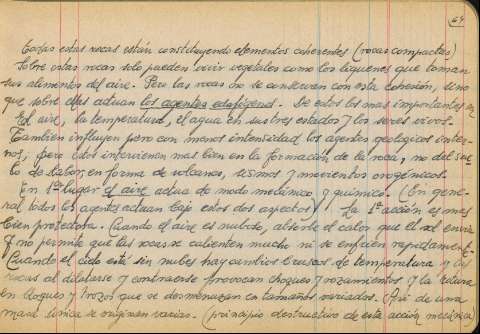 64
Todas estas rocas están constituyendo elementos coherentes (rocas compactas)
Sobre estas rocas solo pueden vivir vegetales como los líquenes que toman
sus alimentos del aire. Pero las rocas no se conservan con esta cohesión, sino
que sobre ellas actuan los agentes edafógenos. De estos los mas importantes son
El aire, la temperatura, el agua en sus tres estados y los seres vivos.
Tambien influyen pero con menos intensidad los agentes geologicos inter-
nos, pero estos intervienen mas bien en la formación de la roca, no del sue-
lo de labor, en forma de volcanes, sismos y movimientos orogénicos.
En 1er lugar el aire actua de modo mecánico y químico. (En gene-
ral todos los agentes actuan bajo estos dos aspectos) La 1ª acción es mas
bien protectora. Cuando el aire es nuboso, absorbe el calor que el sol envia
y no permite que las rocas se calienten mucho ni se enfrien rapidamente.
Cuando el cielo está sin nubes hay cambios bruscos de temperatura y las
rocas al dilatarse y contraerse provocan choques y rozamientos y la rotura
en bloques y trozos que se desmenuzan en tamaños variados. (Asi de una
masa única se originan varias. (principio destructivo de esta acción mecánica